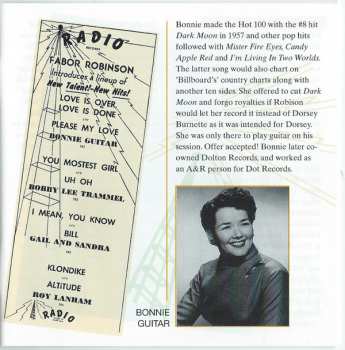 RADIO
RECORDS
FABOR ROBINSON
Introduces a lineup of
New Talent!-New Hits!
LOVE IS OVER,
LOVE IS DONE
AND
PLEASE MY LOVE
BONNIE GUITAR
YOU MOSTEST GIRL
AND
UH OH
BOBBY LEE TRAMMEL
I MEAN, YOU KNOW
AND
BILL
GAIL AND SANDRA
KLONDIKE
AND
ALTITUDE
ROY LANHAM
RADIO
Bonnie made the Hot 100 with the #8 hit
Dark Moon in 1957 and other pop hits
followed with Mister Fire Eyes, Candy
Apple Red and I'm Living In Two Worlds.
The latter song would also chart on
'Billboard's' country charts along with
another ten sides. She offered to cut Dark
Moon and forgo royalties if Robison
would let her record it instead of Dorsey
Burnette as it was intended for Dorsey.
She was only there to play guitar on his
session. Offer accepted! Bonnie later co-
owned Dolton Records, and worked as
an A&R person for Dot Records.
BONNIE
GUITAR